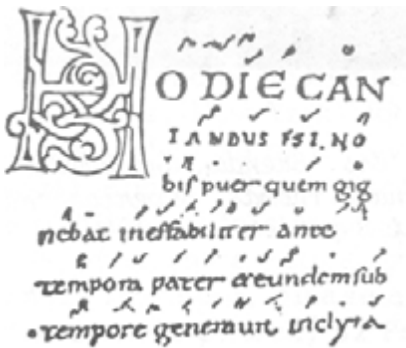 HODIE CAN
TANDUS EST NO
bis puer quem gig
nebat ineffabiliter ante
tempora pater & eundem sub
tempore generavit inclyta